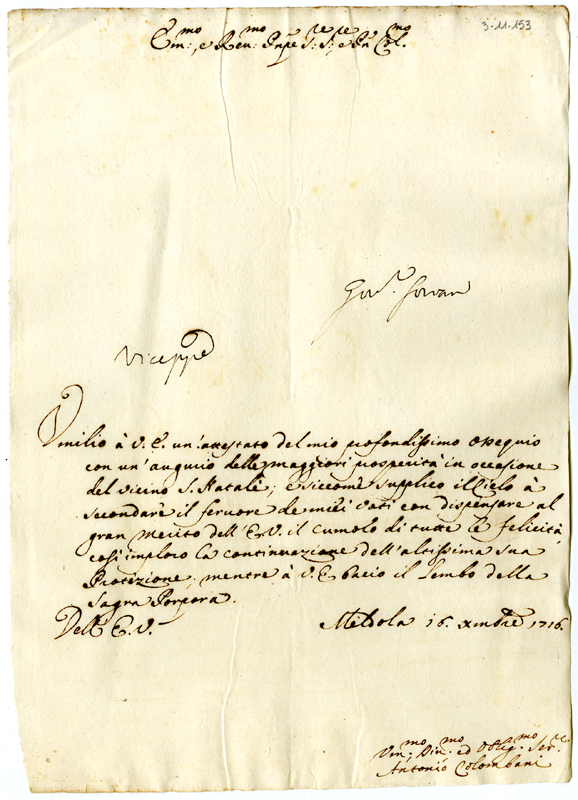 3-11-153
Em:mo, e Reu:mo Pnpe S:re S:, e Pn Col.mo
Viceppe
Vmilio à V. E. un'attestato del mio profondissimo ossequio
con un'augurio delle maggiori prosperità in occasione
del vicino S. Natale; e siccome supplico il Cielo à
secondare il feruore de miei voti con dispensare al
gran merito dell'E. V. il cumolo di tutte le felicità,
così imploro la continuazione dell'altissima sua
Protezione; mentre à V. E. bacio il Lembo della
Sagra Porpora.
Dell'E. V.
Meldola 16. Xmbre 1716.
Vm:mo, Diu:mo ed Obblig:mo Ser:re
Antonio Colombani